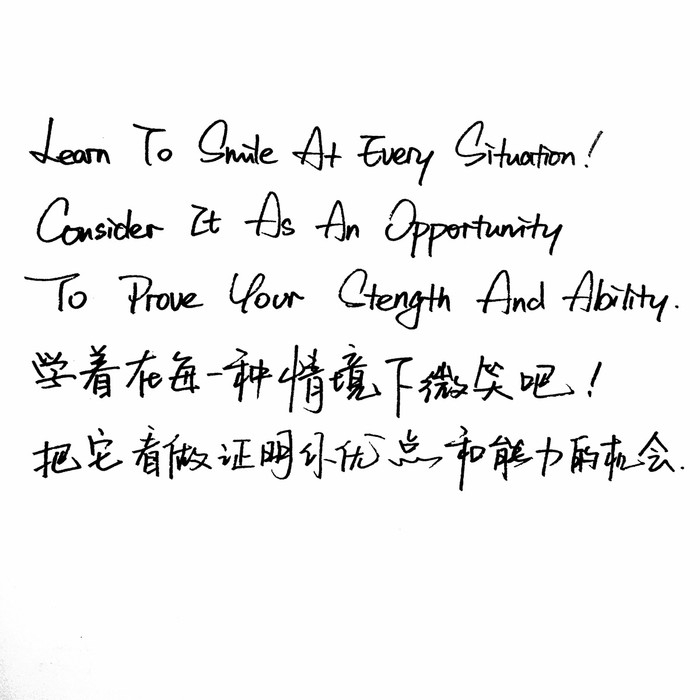 Learn To Smile At Every Situation!
Consider It As An Opportunity
To Prove Your Stength And Ability.
学着在每一种情境下微笑吧！
把它看做证明你优点和能力的机会.